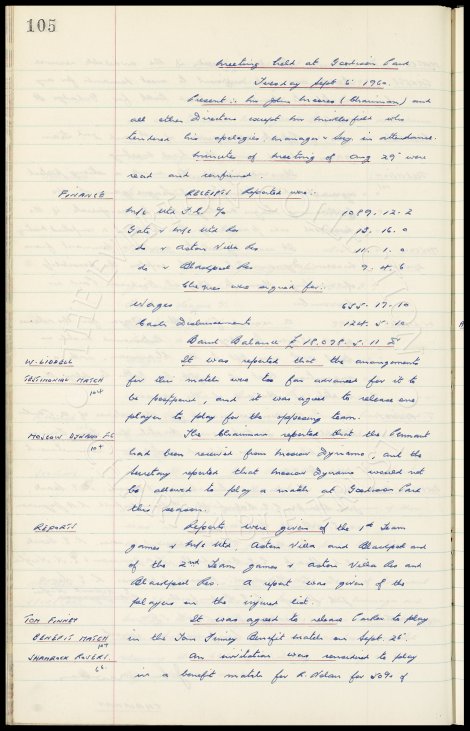 105
Meeting held at Goodison Park
Tuesday Sept 6 1960.
Present: Mr John Moores (Chairman) and
all other Directors except Mr Micklesfield who
tendered his apologies. Manager & Secy. in attendance.
Minutes of Meeting of Aug 29 were
read and confirmed.
FINANCE RECEIPTS Reported were:
M/c Utd F.L. % 1089. 12. 2
Gate v M/c Utd Res 13. 16. 0
do v Aston Villa Res 11. 1. 0
do v Blackpool Res 9. 4. 6
Cheques were signed for:
Wages 655. 17. 10
Cash Disbursements 124. 5. 10
Bank Balance £ 18.078. 5. 11
W. LIDDELL It was reported that the arrangements
TESTIMONIAL MATCH for this match were too far advanced for it to
be postponed, and it was agreed to release one
player to play for the opposing team.
MOSCOW DYNAMO F.C. The Chairman reported that the Pennant
had been received from Moscow Dynamo, and the
Secretary reported that Moscow Dynamo would not
be allowed to play a match at Goodison Park
this season.
REPORTS Reports were given of the 1st Team
games v M/c Utd. Aston Villa and Blackpool and
of the 2nd Team games v Aston Villa Res and
Blackpool Res. A report was given of the
players on the injured list.
TOM FINNEY It was agreed to release Parker to play
BENEFIT MATCH in the Tom Finney Benefit match on Sept. 26.
SHAMROCK ROVERS. An invitation was received to play
in a benefit match for R. Nolan for 50% of